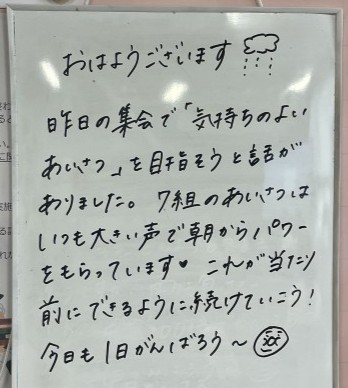 おはようございます
昨日の集会で「気持ちのよい
あいさつ」を目指そうと話が
ありました。7組のあいさつは
いつも大きい声で朝からパワー
をもらっています♥ これが当たり
前にできるように続けていこう！
今日も1日がんばろう〜